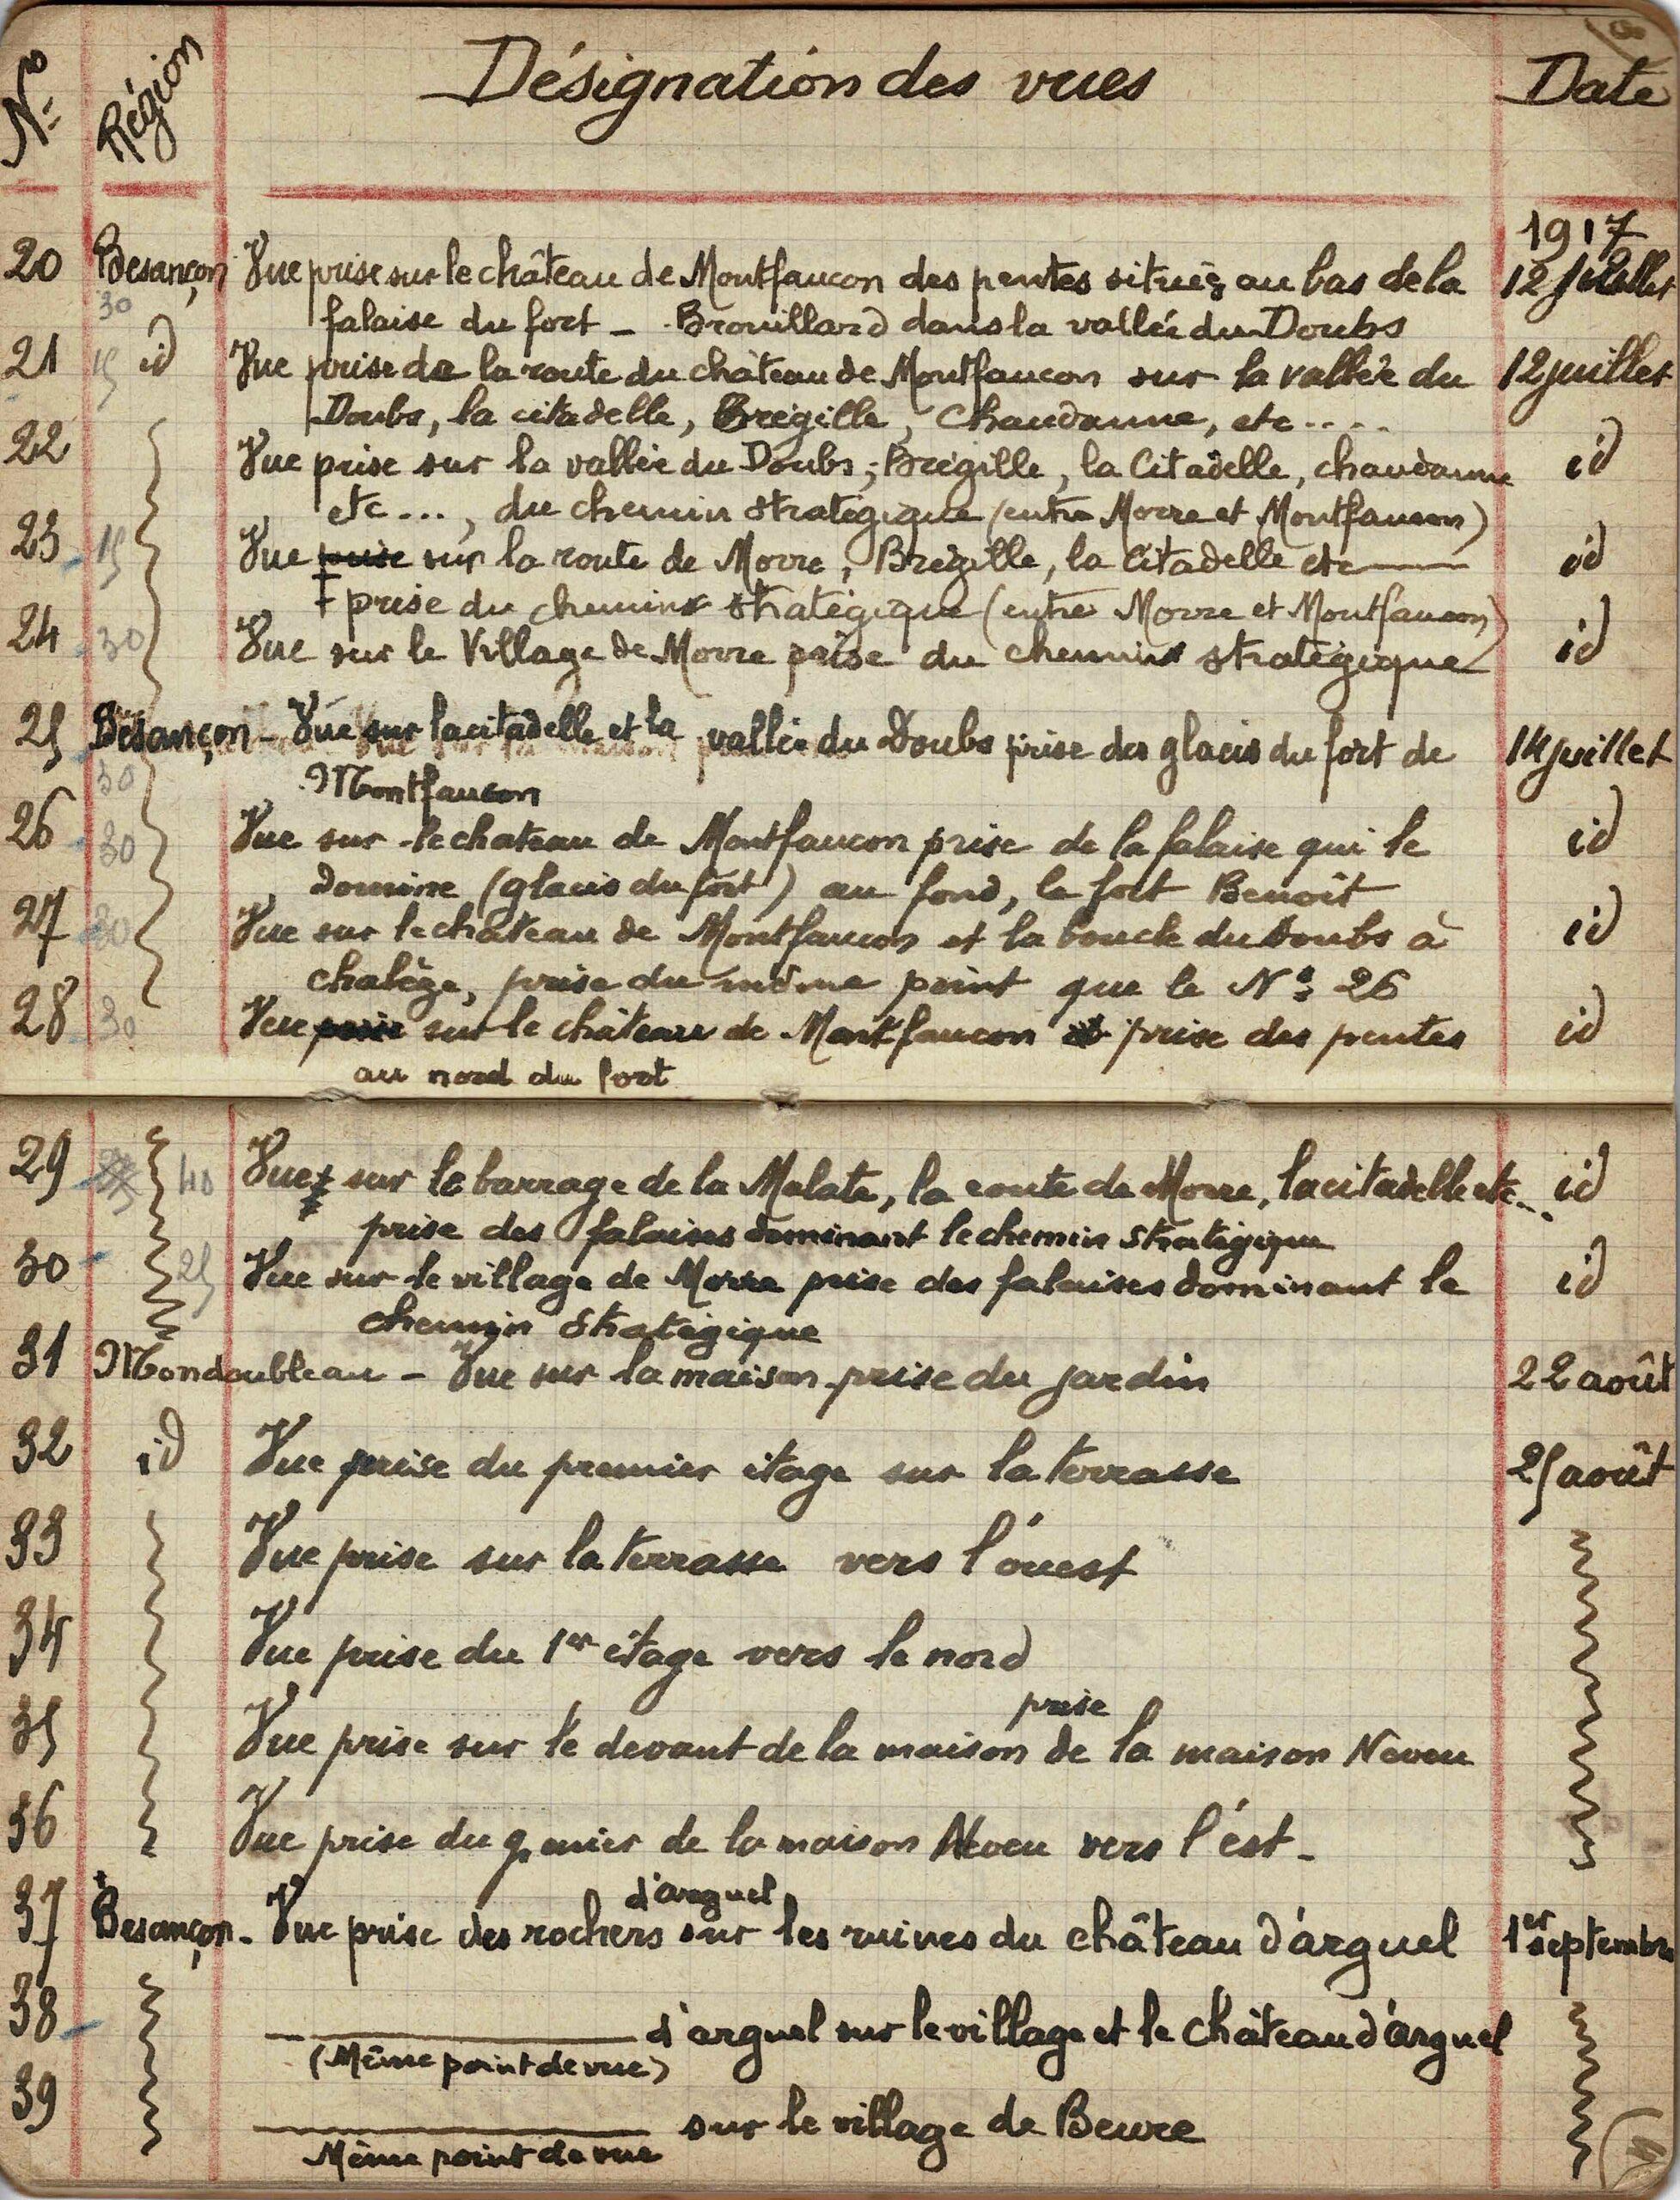 N° Région Désignation des vues Date
1917
20 Besançon Vue prise sur le château de Montfaucon des pentes situées au bas de la 12 juillet
30 falaise du fort - Brouillard dans la vallée du Doubs
21 15 id Vue prise de la route du château de Montfaucon sur la vallée du 12 juillet
Doubs, la citadelle, Brégille, Chaudanne, etc....
22 Vue prise sur la vallée du Doubs, Brégille, la Citadelle, chaudanne id
etc..., du chemin stratégique (entre Morre et Montfaucon)
23 15 Vue prise sur la route de Morre, Brégille, la Citadelle etc id
prise du chemin stratégique (entre Morre et Montfaucon)
24 30 Vue sur le Village de Morre prise du chemin stratégique id
25 Besançon - Vue sur la citadelle et la vallée du Doubs prise des glacis du fort de 14 juillet
30 Montfaucon
26 30 Vue sur le chateau de Montfaucon prise de la falaise qui le id
domine (glacis du fort) au fond, le fort Benoît
27 30 Vue sur le château de Montfaucon et la boucle du Doubs à id
chalèze, prise du même point que le N° 26
28 30 Vue prise sur le château de Montfaucon prise des pentes id
au nord du fort
29 40 Vue sur le barrage de la Malate, la route de Morre, la citadelle etc... id
prise des falaises dominant le chemin stratégique
30 25 Vue sur le village de Morre prise des falaises dominant le id
chemin stratégique
31 Mondoubleau - Vue sur la maison prise du jardin 22 août
32 id Vue prise du premier étage sur la terrasse 25 août
33 Vue prise sur la terrasse vers l'ouest
34 Vue prise du 1er étage vers le nord
prise
35 Vue prise sur le devant de la maison de la maison Neveu
36 Vue prise du grenier de la maison Neveu vers l'est -
d'arguel
37 Besançon - Vue prise des rochers sur les ruines du château d'arguel 1er septembre
38 d'arguel sur le village et le château d'arguel
(Même point de vue)
39 sur le village de Beure
Même point de vue